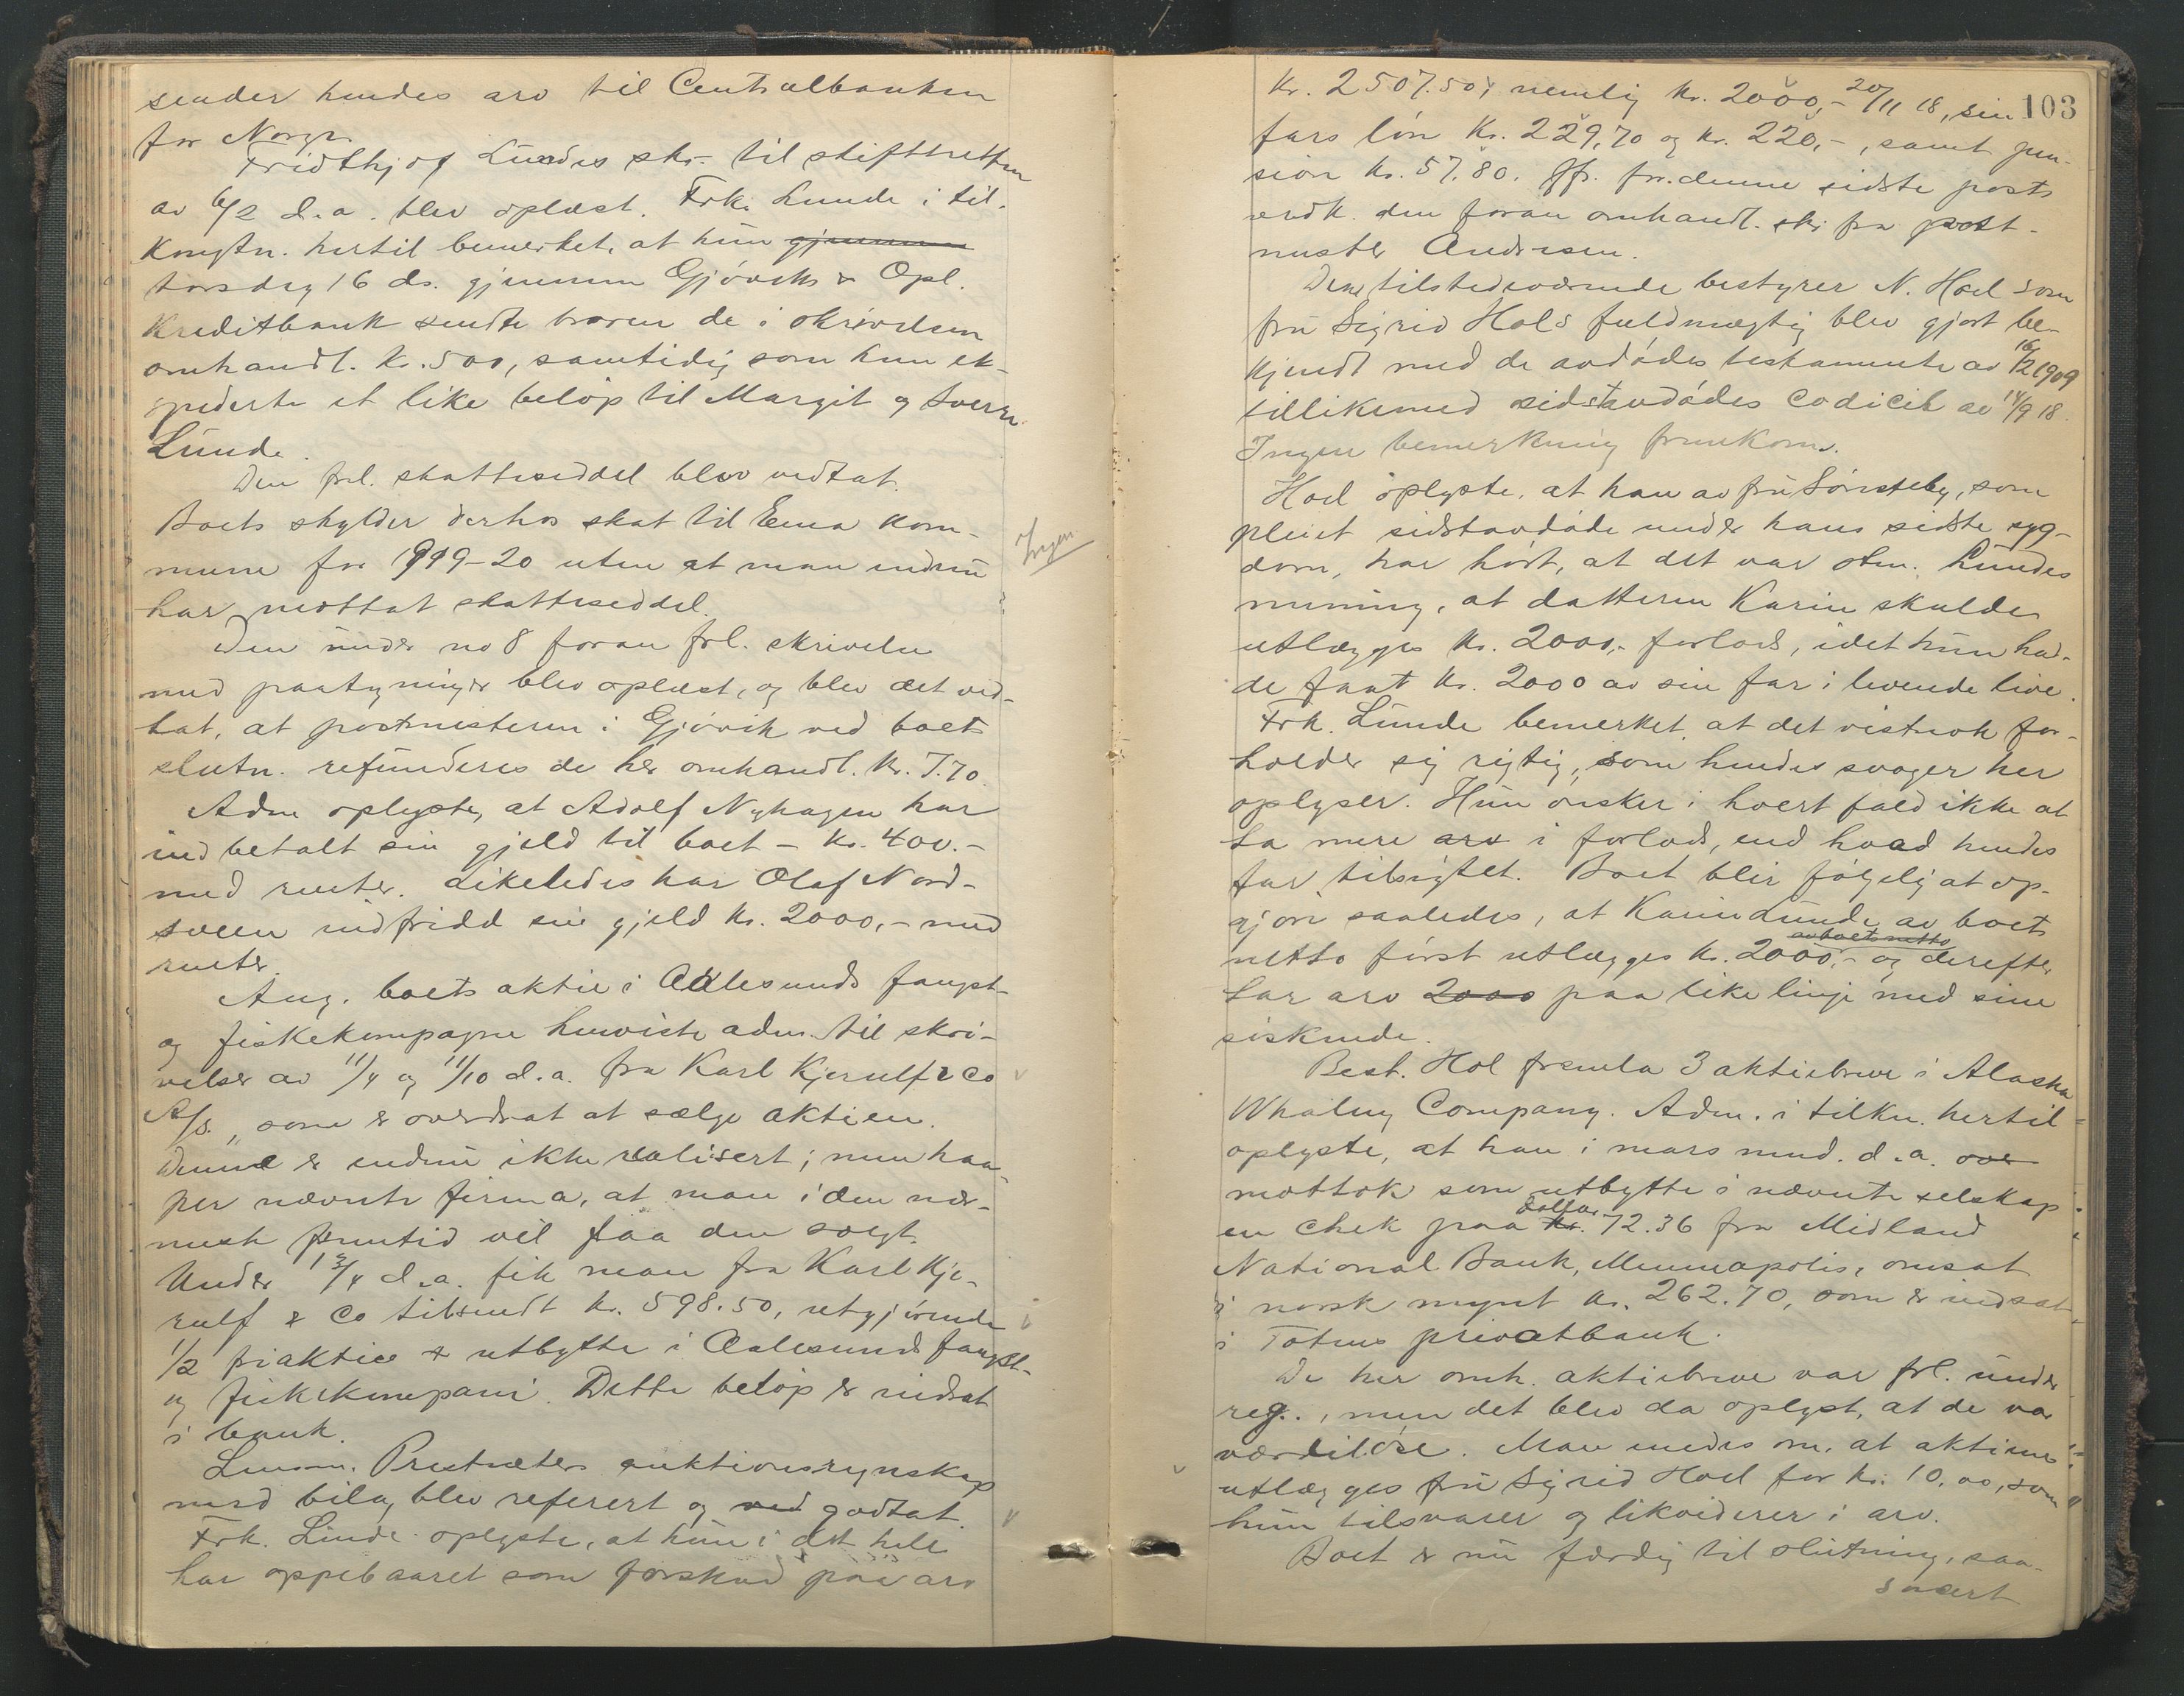 sender hendes arv til Centralbanken
for Norge.
Fridthjof Lundes skr. til skifteretten
av 6/2 d.a. blev oplæst. Frk. Lunde i til-
knytn. hertil bemerket, at hun gjennem
torsdag 16 ds. gjennem Gjøviks & Opl.
Kreditbank sendte broren de i skrivelsen
omhandl. kr. 500, samtidig som hun ek-
spederte et like beløp til Margit og Sverre
Lunde.
Den frl. skatteseddel blev vedtat.
Boets skylder derhos skat til Eina kom-
mune for 1919-20 uten at man endnu
har mottat skatteseddel.
Ingen
Den under no 8 foran frl. skrivelse
med paategninger blev oplæst, og blev det ved-
tat, at postmesteren i Gjøvik ved boets
slutn. refunderes de her omhandl. kr. 7.70.
Adm oplyste, at Adolf Nyhagen har
indbetalt sin gjeld til boet - kr. 400.-
med renter. Likeledes har Olaf Nord-
sveen indfridd sin gjeld kr. 2000,- med
renter.
Ang. boets aktie i Aalesunds fangst-
og fiskekompagne henviste adm. til skri-
velser av 11/4 og 11/10 d.a. fra Karl Kjerulf & Co
A/S., som er overdrat at sælge aktien.
Denne er endnu ikke realisert; men haa-
per nævnte firma, at man i den nær-
meste fremtid vil faa den solgt.
Under 13/4 d.a. fik man fra Karl Kje-
rulf & Co tilsendt kr. 598.50, utgjørende
1/2 friaktie + utbytte i Aalesunds fangst-
og fiskekompani. Dette beløp er indsat
i bank.
Lensm. Prestsæters auktionsregnskap
med bilag blev referert og ved godtat.
Frk. Lunde oplyste, at hun i det hele
har oppebaaret som forskud paa arv
103
Kr. 2507.50, nemlig kr. 2000,- 20/11 18, sin
fars løn kr. 229,70 og kr. 220,-, samt pen-
sion kr. 57.80. Jfr. for denne sidste posts
vedk. den foran omhandl. skr. fra post-
mester Andersen.
Den tilstedeværende bestyrer N. Hoel som
fru Sigrid Hols fuldmægtig blev gjort be-
kjendt med de avdødes testamente av 16/12 1909
tillikemed sidstavdødes codicil av 14/9 18.
Ingen bemerkning fremkom.
Hoel oplyste, at han av fru Sønsteby, som
pleiet sidstavdøde under hans sidste syg-
dom, har hørt, at det var stm. Lundes
mening, at datteren Karin skulde
utlægges kr. 2000,- forlods, idet hun had-
de faat kr. 2000 av sin far i levende live.
Frk. Lunde bemerket, at det vistnok for-
holder sig rigtig, som hendes svoger her
oplyser. Hun ønsker i hvert fald ikke at
ta mere arv i forlods, end hvad hendes
far tilsigtet. Boet blir følgelig at op-
gjøre saaledes, at Karin Lunde av boets
av boets netto
netto først utlægges kr. 2000,- og derefter
tar arv 2000 paa like linje med sine
siskende.
Best. Hol fremla 3 aktiebreve i Alaska
Whaling Company. Adm. i tilkn. hertil
oplyste, at han i mars mnd. d.a. ove
mottok som utbytte i nævnte selskap
dollar
en chek paa kr. 72.36 fra Midland
National Bank, Minneapolis, omsat
i norsk mynt kr. 262.70, som er indsat
i Totens privatbank.
De her omh. aktiebreve var frl. under
reg., men det blev da oplyst, at de var
værdiløse. Man enedes om, at aktiene
utlægges fru Sigrid Hoel for kr. 10.00, som
hun tilsvarer og likviderer i arv.
Boet er nu færdig til slutning, saa-
snart